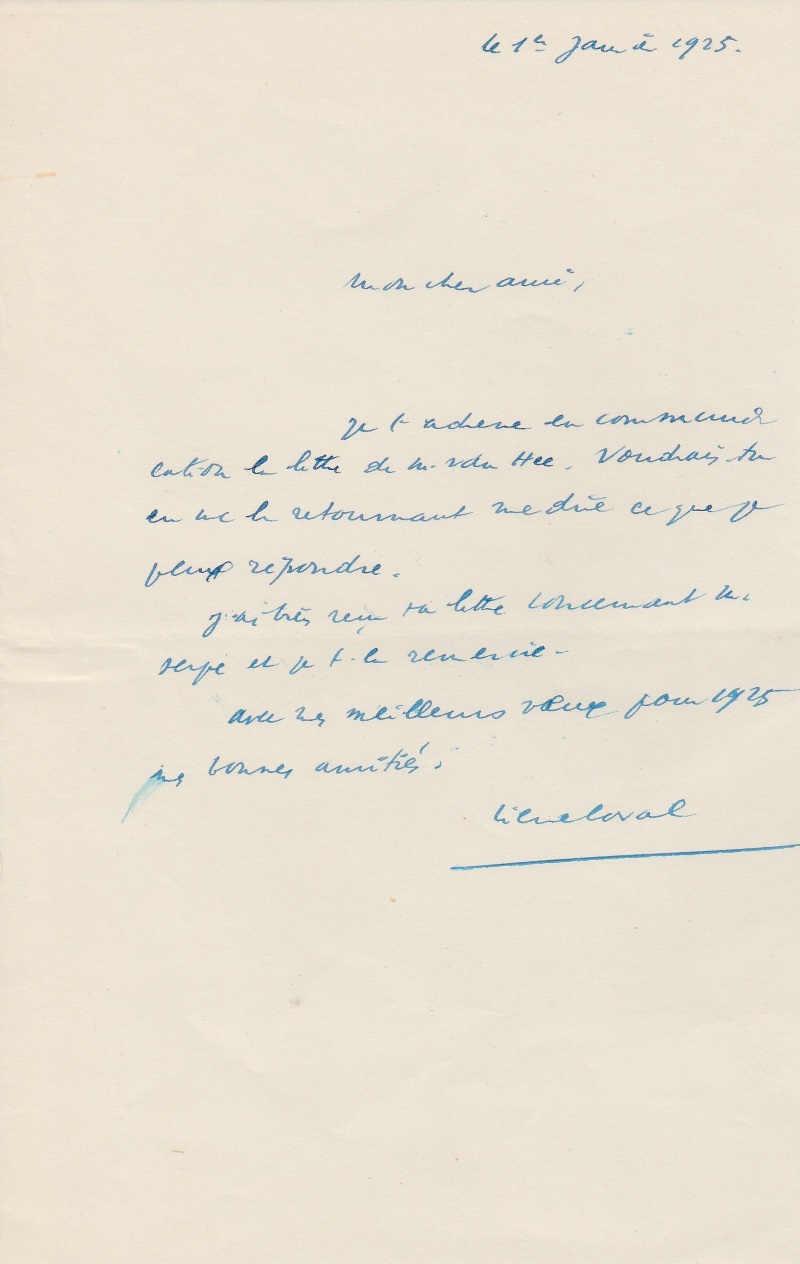 le 1er Janvier 1925.
Mon cher ami,
je t'adresse en communi
cation la lettre de M. Van Hee. Voudrais-tu
en me la retournant me dire ce que je
peux répondre.
J'ai bien reçu ta lettre concernant M.
Serpe et je t'en remercie.
avec mes meilleurs vœux pour 1925
mes bonnes amitiés.
Pierre Laval